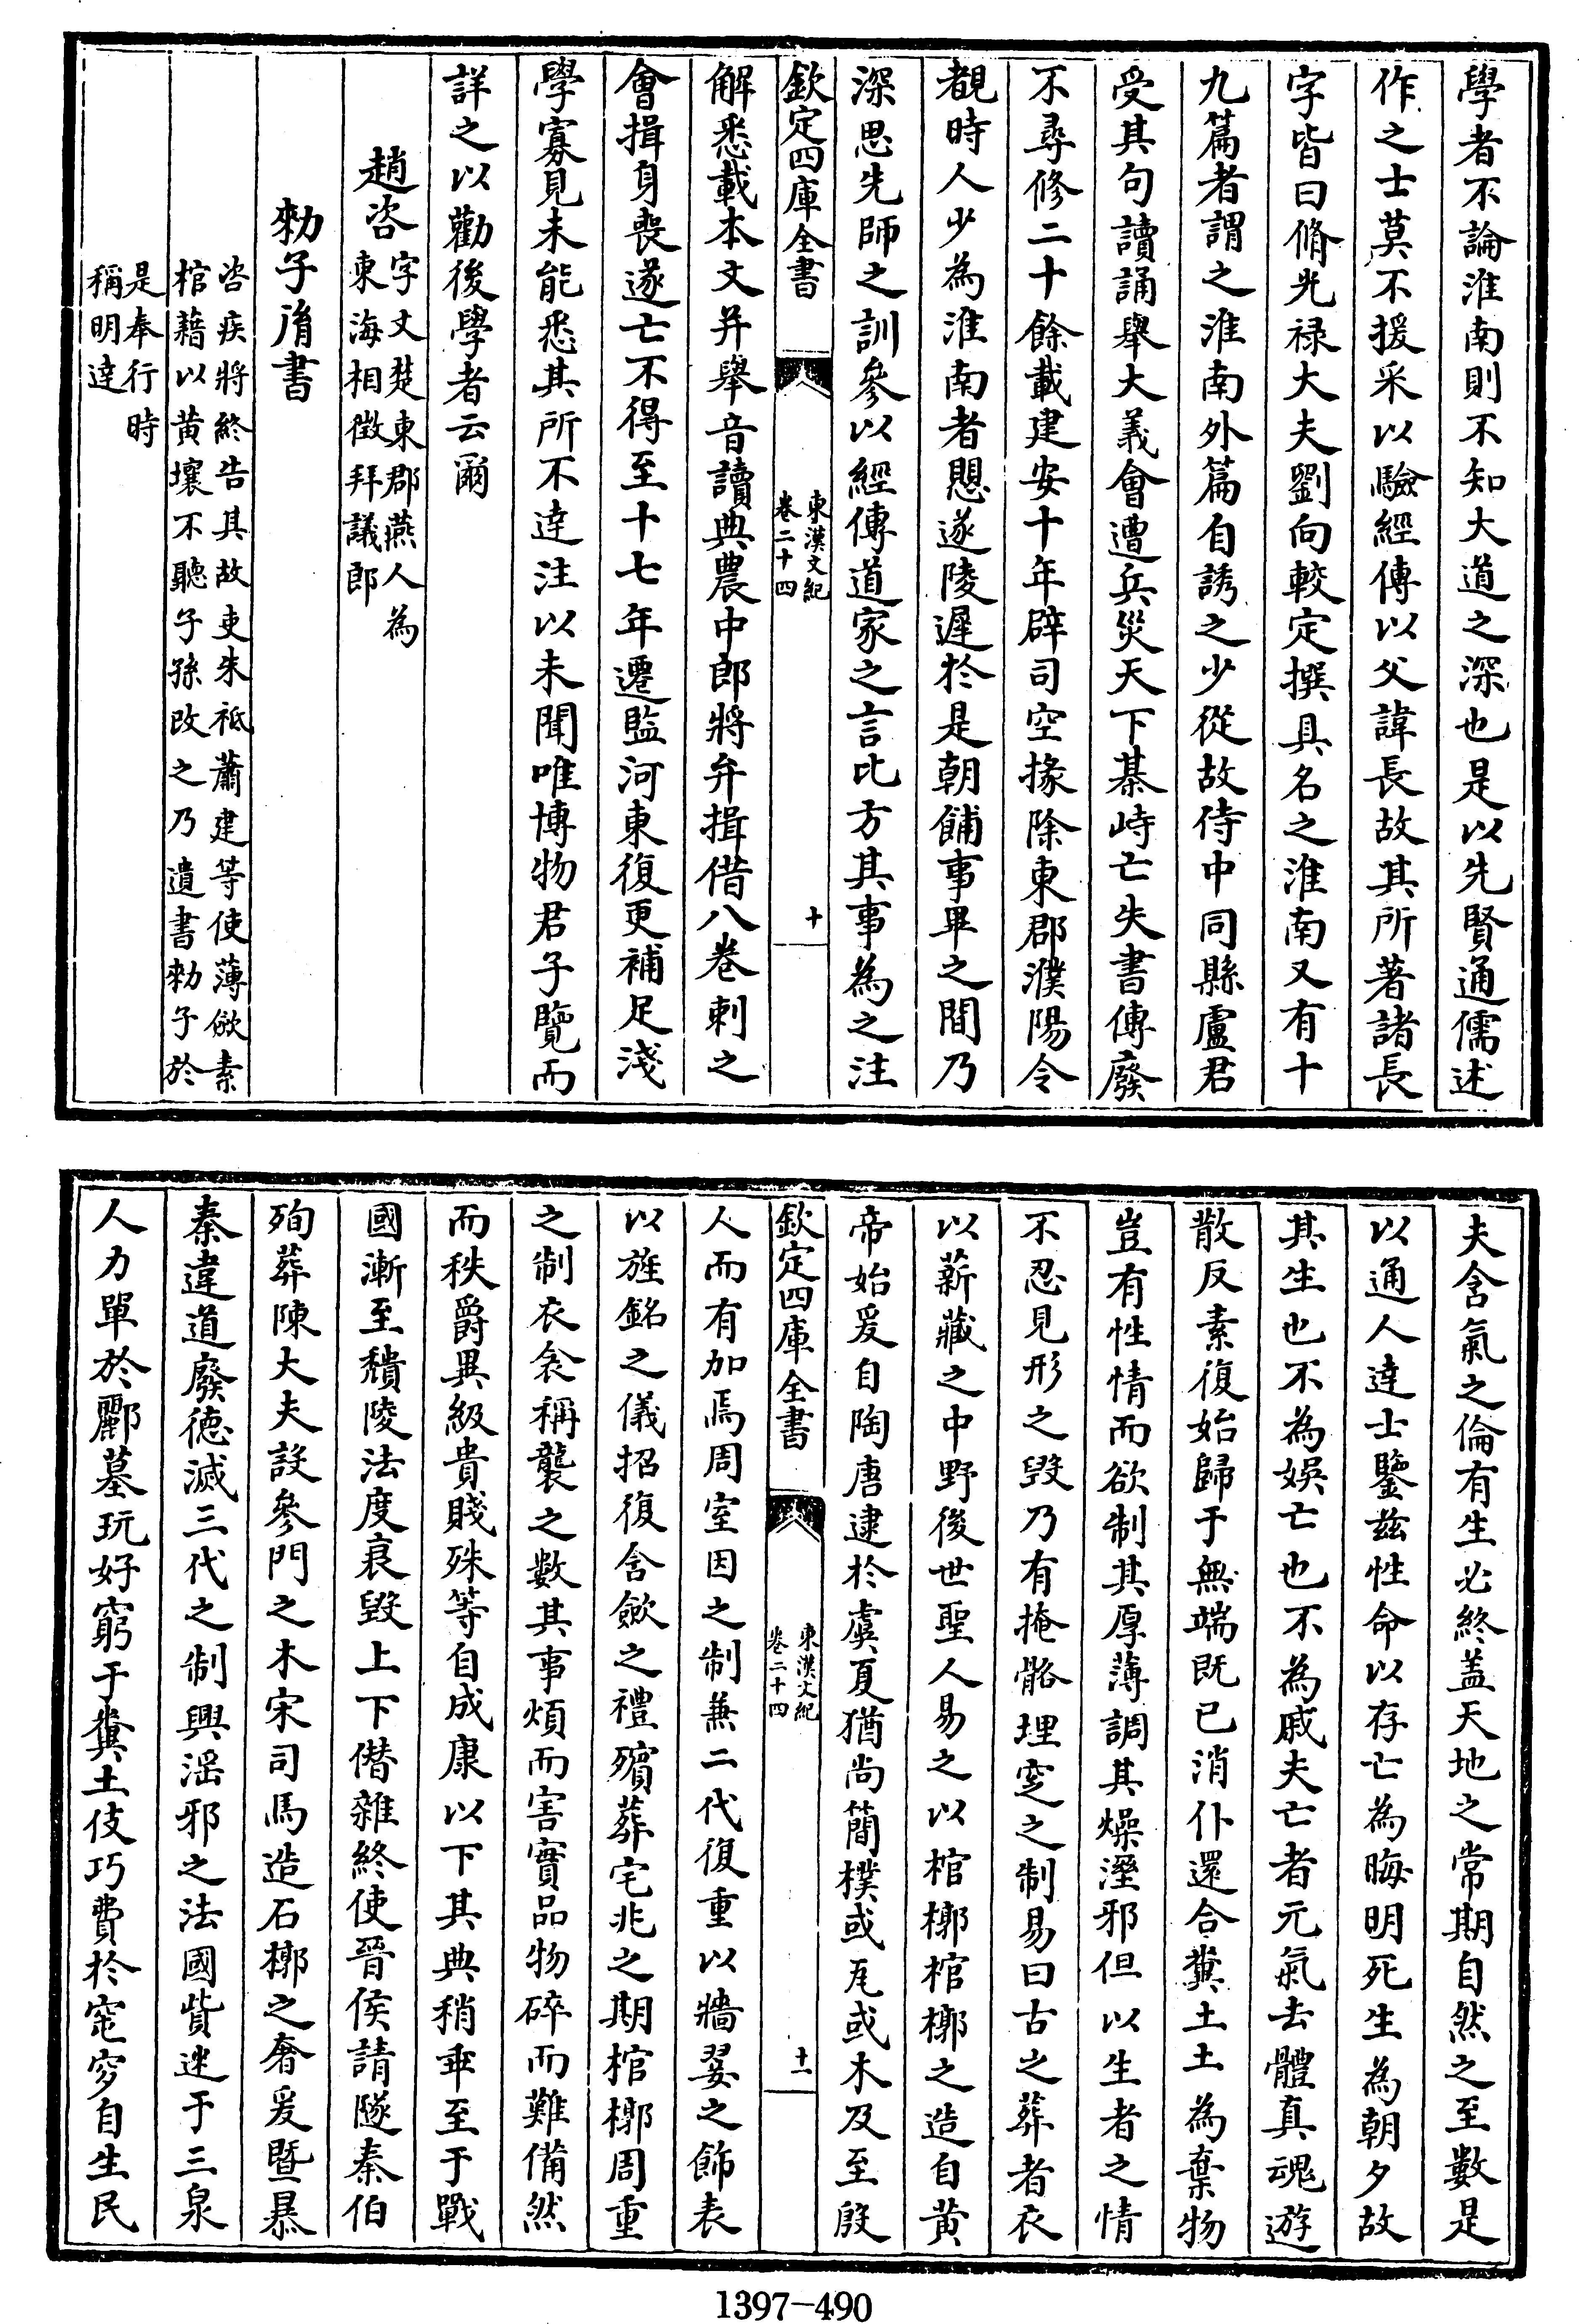 學者不論淮南則不知大道之深也是以先賢通儒述
作之士莫不援采以驗經傳以父諱長故其所著諸長
字皆曰脩光禄大夫劉向較定撰具名之淮南又有十
九篇者謂之淮南外篇自誘之少從故侍中同縣盧君
受其句讀誦舉大義會遭兵災天下棊峙亡失書傳廢
不尋修二十餘載建安十年辟司空掾除東郡濮陽令
覩時人少為淮南者懇遂陵遲於是朝餔事畢之間乃
深思先師之訓參以經傳道家之言比方其事為之注
欽定四庫全書
東漢文紀
卷二十四
十
解悉載本文并舉音讀典農中郎將弁揖借八卷刺之
會揖身喪遂亡不得至十七年遷監河東復更補足淺
學寡見未能悉其所不逹注以未聞唯博物君子覽而
詳之以勸後學者云爾
趙咨
字文楚東郡燕人為
東海相徵拜議郎
勑子胤書
咨疾將終告其故吏朱祗蕭建等使薄斂素
棺藉以黄壤不聽子孫改之乃遺書勑子於
是奉行時
稱明逹
夫含氣之倫有生必終盖天地之常期自然之至數是
以通人逹士鑒兹性命以存亡為晦明死生為朝夕故
其生也不為娛亡也不為戚夫亡者元氣去體真魂遊
散反素復始歸于無端既已消仆還合糞土土為棄物
豈有性情而欲制其厚薄調其燥溼邪但以生者之情
不忍見形之毀乃有掩骼埋窆之制易曰古之葬者衣
以薪藏之中野後世聖人易之以棺槨棺槨之造自黄
帝始爰自陶唐逮於虞夏猶尚簡樸或瓦或木及至殷
欽定四庫全書
東漢文紀
卷二十四
十一
人而有加焉周室因之制兼二代復重以牆翣之飾表
以旌銘之儀招復含斂之禮殯葬宅兆之期棺槨周重
之制衣衾稱襲之數其事煩而害實品物碎而難備然
而秩爵異級貴賤殊等自成康以下其典稍乖至于戰
國漸至穨陵法度衰毀上下僭雜終使晉侯請隧秦伯
殉葬陳大夫設參門之木宋司馬造石槨之奢爰暨暴
秦違道廢德滅三代之制興淫邪之法國貲迷于三泉
人力單於酈墓玩好窮于糞土伎巧費於窀穸自生民
1397-490